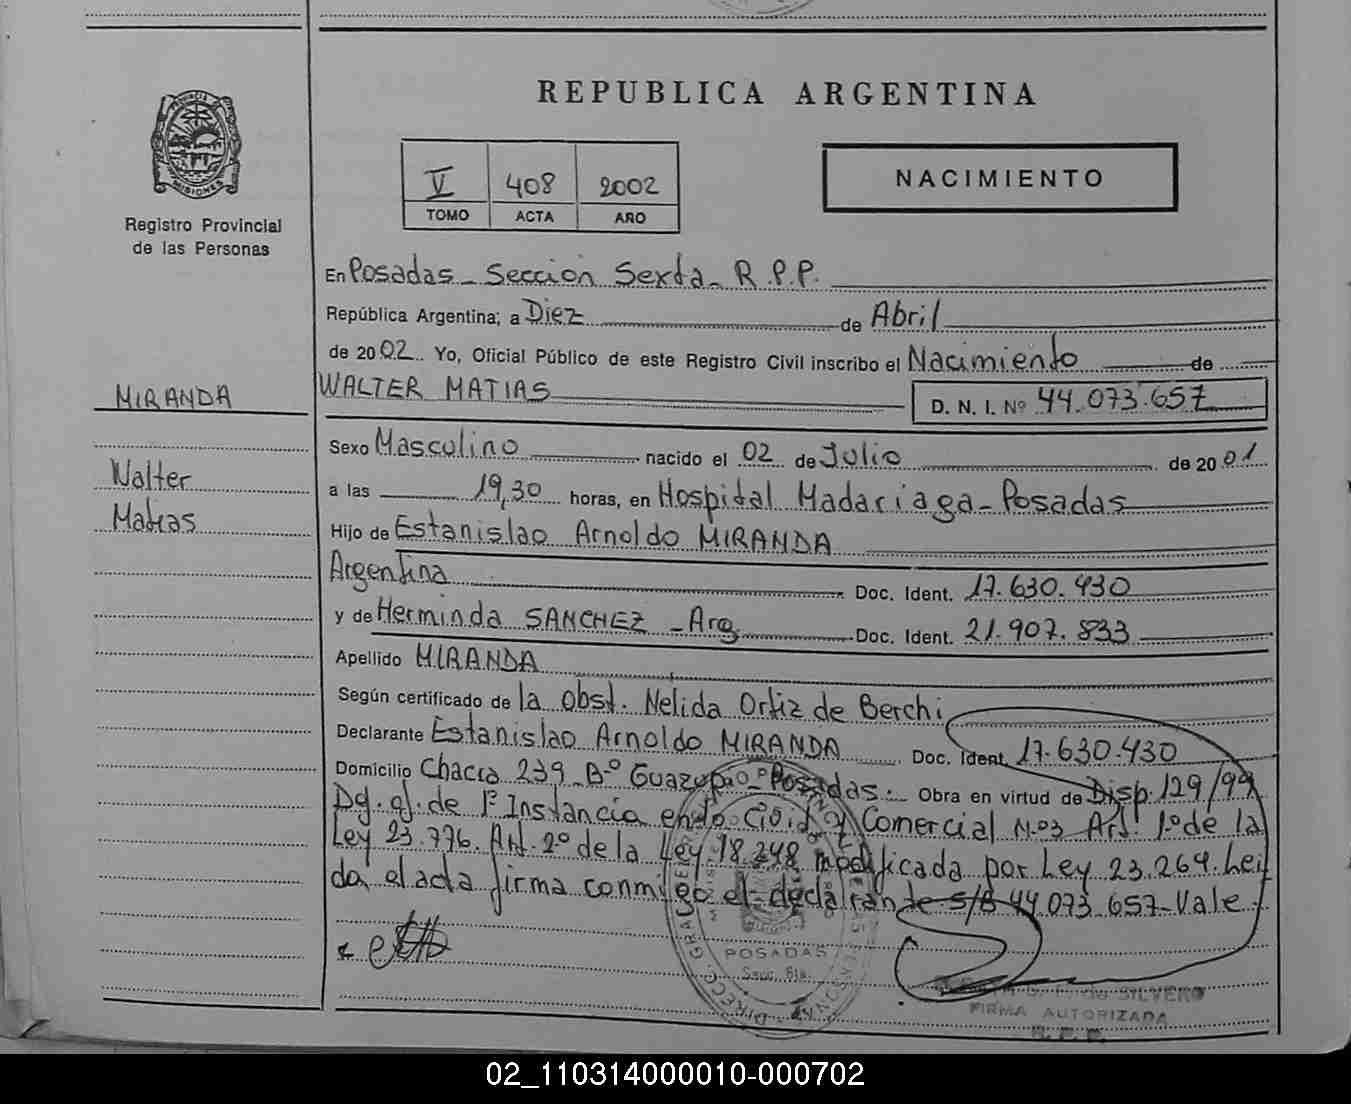 REPUBLICA ARGENTINA
PROVINCIA DE MISIONES
Registro Provincial
de las Personas
V 408 2002
TOMO ACTA AÑO
NACIMIENTO
En Posadas - Sección Sexta - R.P.P.
República Argentina; a Diez de Abril
de 2002 Yo, Oficial Público de este Registro Civil inscribo el Nacimiento de
MIRANDA
WALTER MATIAS D. N. I. Nº 44.073.657
Sexo Masculino nacido el 02 de Julio de 2001
Walter
a las 19,30 horas, en Hospital Madariaga - Posadas
Matias
Hijo de Estanislao Arnoldo MIRANDA
Argentina Doc. Ident. 17.630.430
y de Herminda SANCHEZ - Arg. Doc. Ident. 21.907.833
Apellido MIRANDA
Según certificado de la obst. Nelida Ortiz de Berchi
Declarante Estanislao Arnoldo MIRANDA Doc. Ident. 17.630.430
Domicilio Chacra 239 - Bº Guazupi - Posadas. Obra en virtud de Disp. 129/99
de 1º Instancia en lo Civil y Comercial Nº 3 Art. 1º de la
Ley 23.776. Art. 2º de la Ley 18.248 modificada por Ley 23.264. Lei
da el acta firma conmigo el declarante S/B 44.073.657 - Vale.
POSADAS
Secc. 6ta.
de SILVERO
FIRMA AUTORIZADA
R. P. P.
02_110314000010-000702